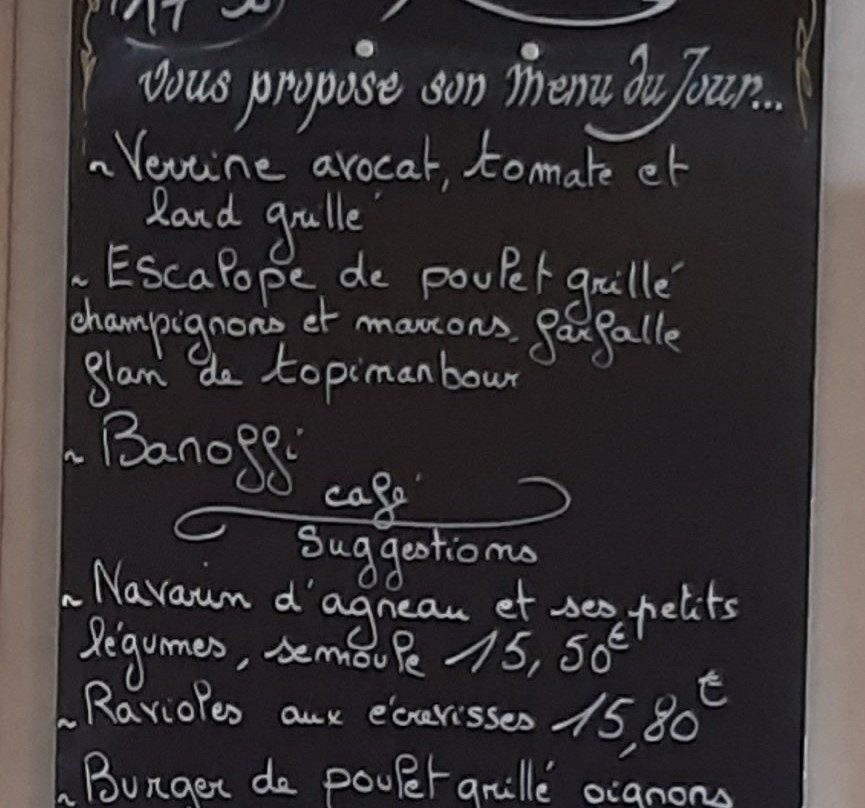 Vous propose son Menu du Jour...
~ Verrine avocat, tomate et
lard grillé
~ Escalope de poulet grillé
champignons et marrons, farfalle
flan de topimanbour
~ Banoffi
café
Suggestions
~ Navarin d'agneau et ses petits
légumes, semoule 15,50€
~ Ravioles aux écrevisses 15,80€
~ Burger de poulet grillé oignons